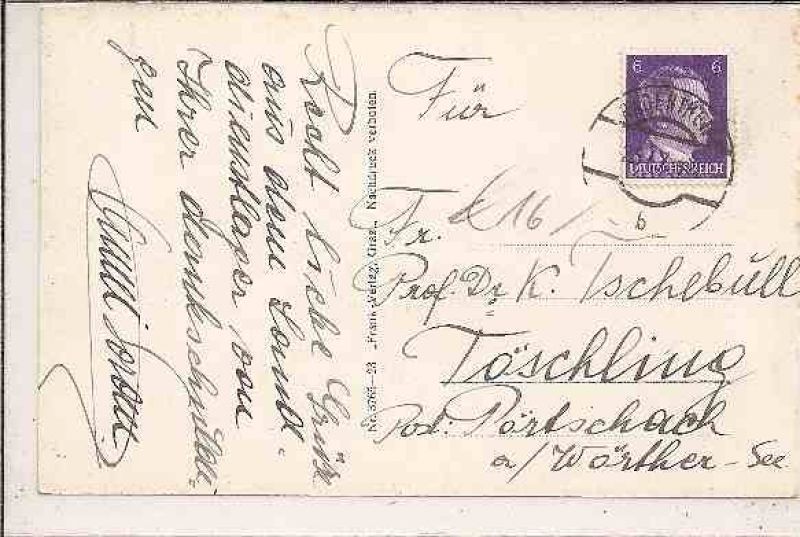 Recht liebe Grüße
aus dem Land-
dienstlager von
Ihrer dankschuldi-
gen
Nr. 3765-23 „Frank“-Verlag, Graz. Nachdruck verboten.
Für
Fr.
16
Prof. Dr. K. Tschebull
Töschling
Pörtschach
a/Wörther-See
6 6
DEUTSCHES REICH
b